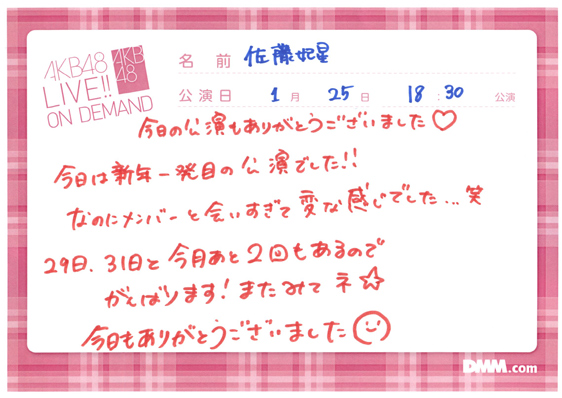 AKB48
LIVE!!
ON DEMAND
AKB
48
名 前 佐藤妃星
公演日 1月 25日 18:30 公演
今日の公演もありがとうございました♡
今日は新年一発目の公演でした!!
なのにメンバーと会いすぎて変な感じでした...笑
29日、31日と今月あと2回もあるので
がんばります!またみてネ☆
今日もありがとうございました
DMM.com